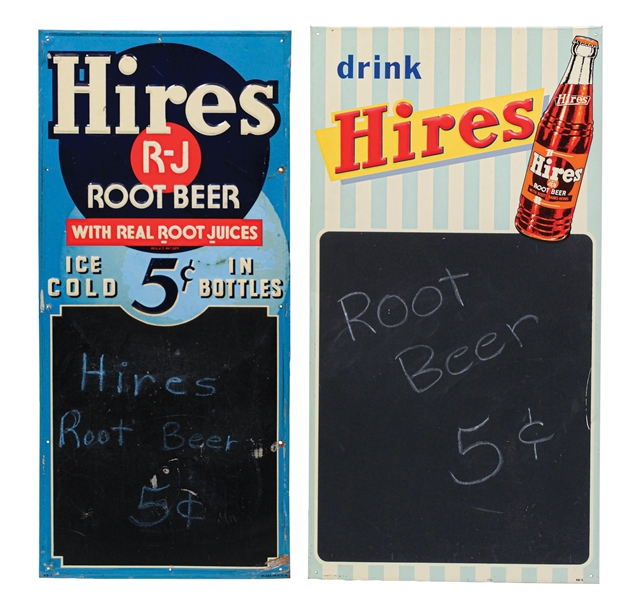 Hires
R-J
ROOT BEER
WITH REAL ROOT JUICES
ICE COLD 5¢ IN BOTTLES
Hires
Root Beer
5¢
drink
Hires
Hires
Hires
ROOT BEER
Root
Beer
5¢